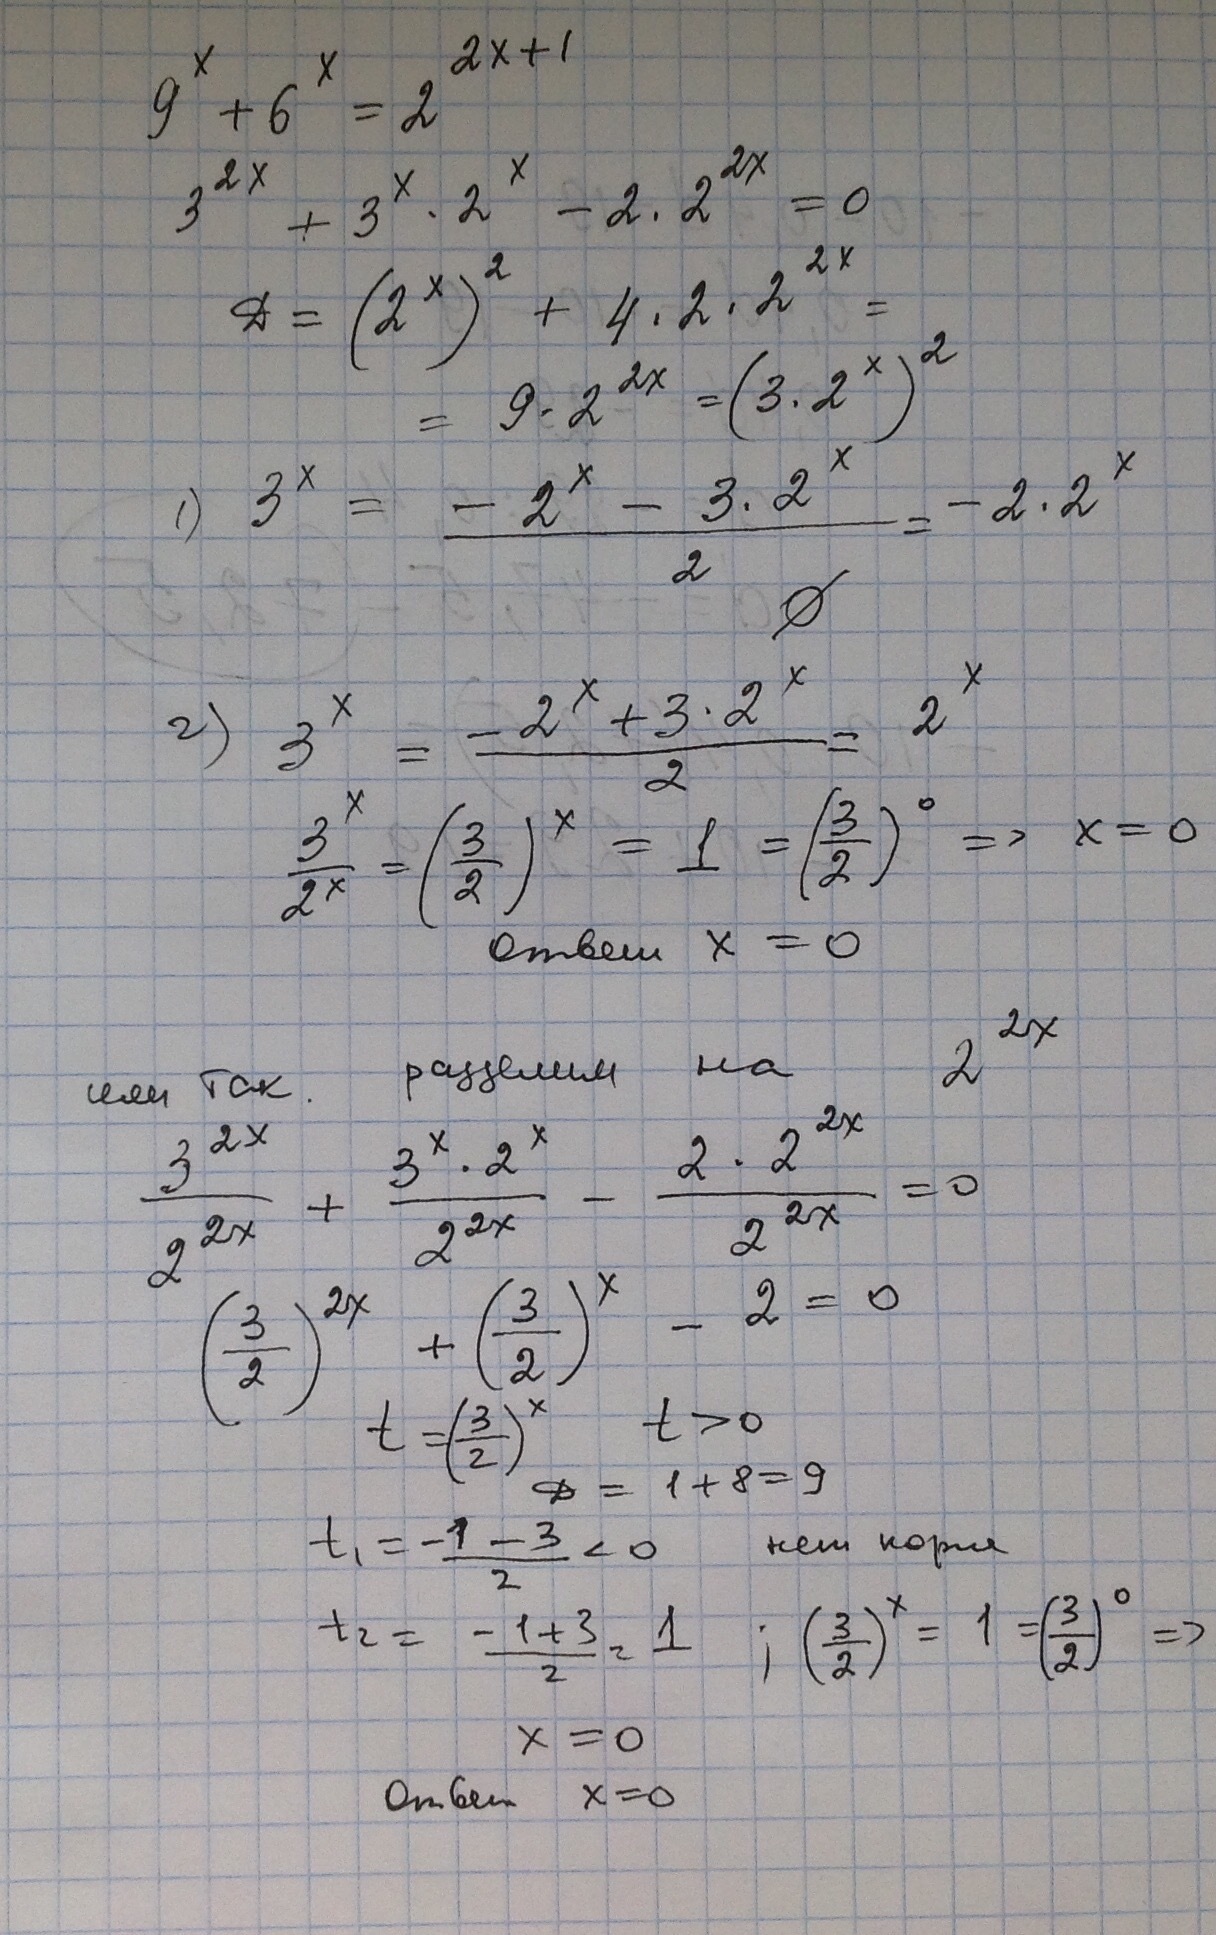 9^x + 6^x = 2^{2x+1}
3^{2x} + 3^x · 2^x − 2 · 2^{2x} = 0
D = (2^x)^2 + 4 · 2 · 2^{2x} =
= 9 · 2^{2x} = (3 · 2^x)^2
1) 3^x = (−2^x − 3 · 2^x)/2 = −2 · 2^x
∅
2) 3^x = (−2^x + 3 · 2^x)/2 = 2^x
3^x/2^x = (3/2)^x = 1 = (3/2)^0 => x = 0
ответ x = 0
или так. разделим на 2^{2x}
3^{2x}/2^{2x} + (3^x · 2^x)/2^{2x} − (2 · 2^{2x})/2^{2x} = 0
(3/2)^{2x} + (3/2)^x − 2 = 0
t = (3/2)^x t > 0
D = 1 + 8 = 9
t₁ = (−1 − 3)/2 < 0 нет корня
t₂ = (−1 + 3)/2 = 1 ; (3/2)^x = 1 = (3/2)^0 =>
x = 0
Ответ x = 0